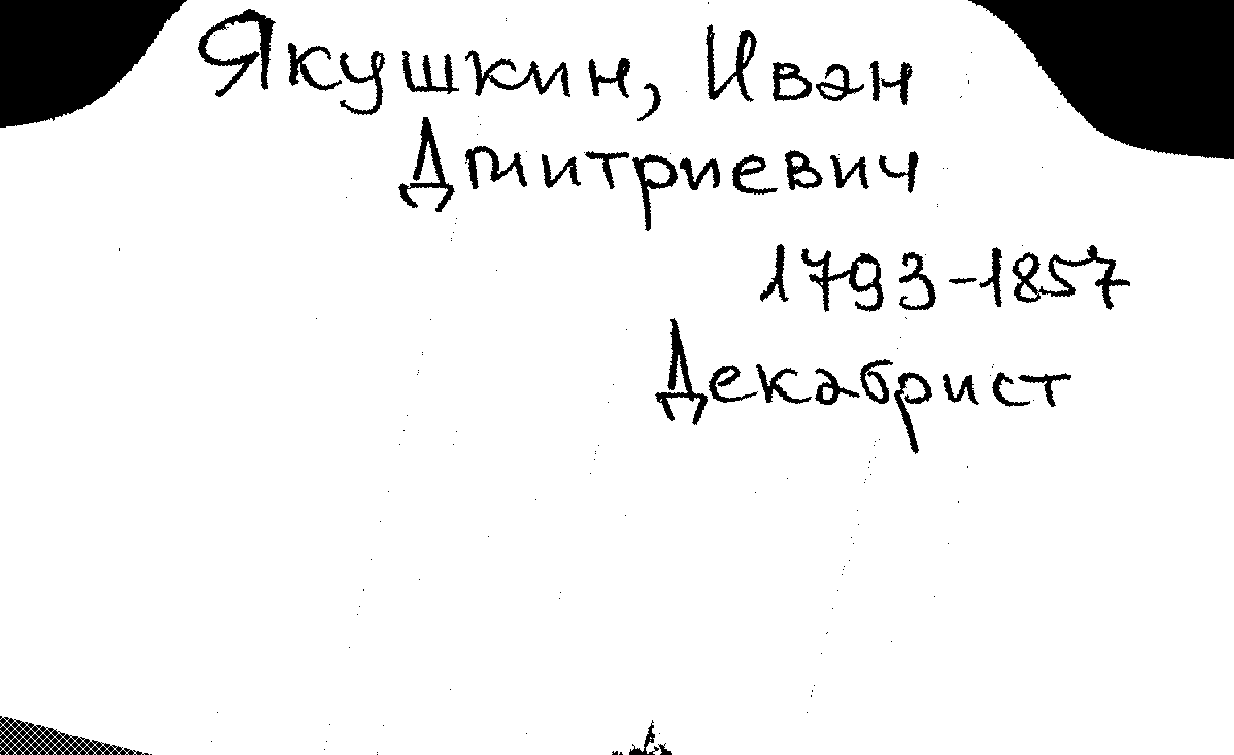 Якушкин, Иван
Дмитриевич
1793-1857
Декабрист